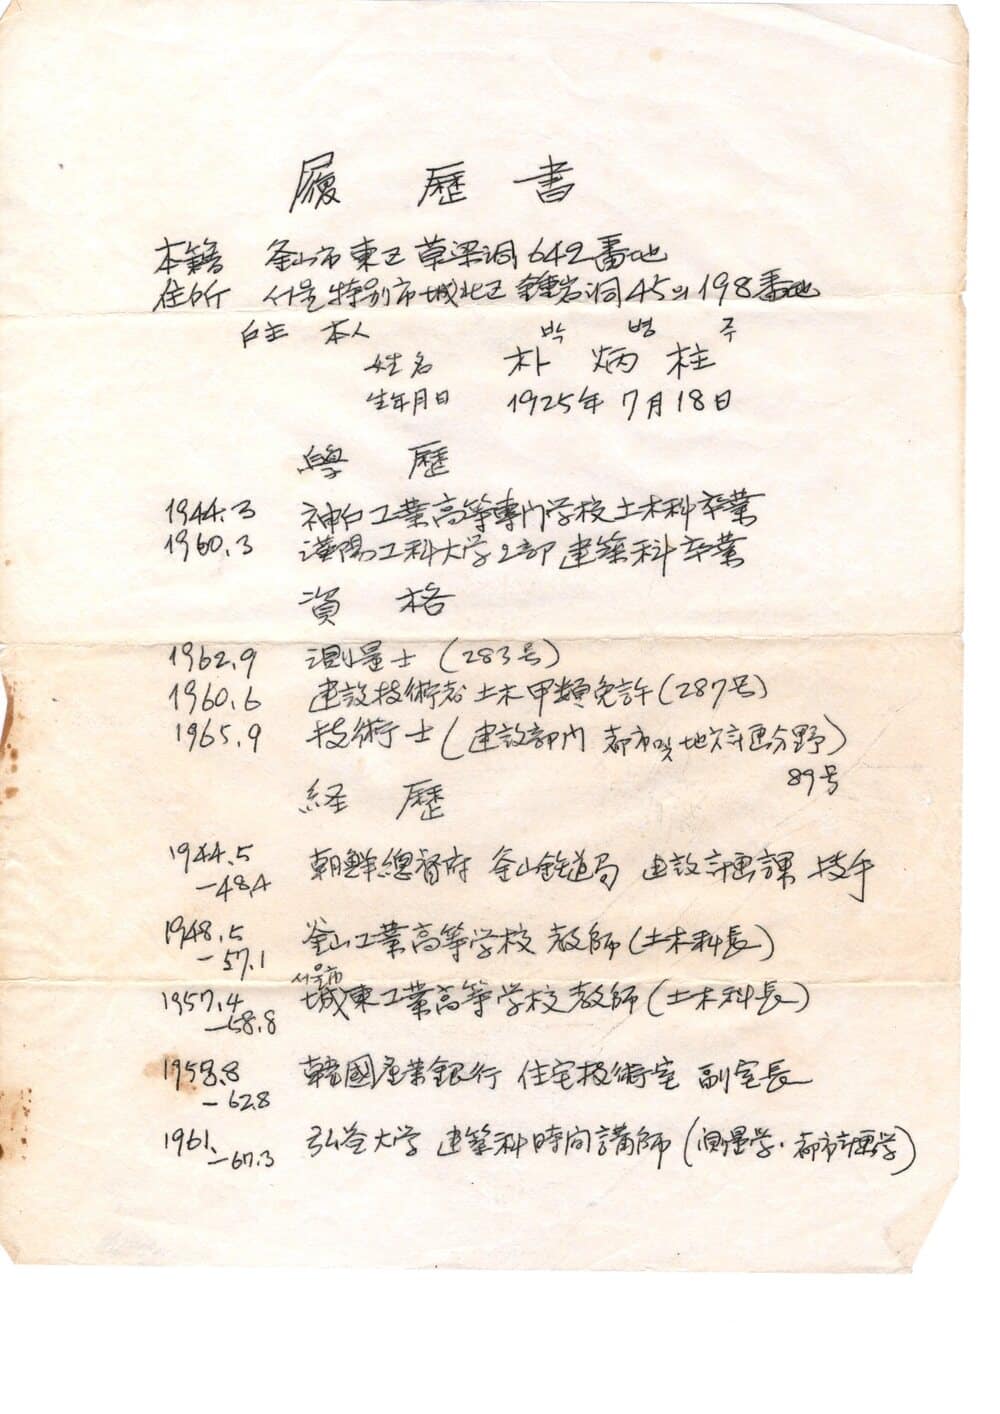 履歷書
本籍 釜山市東区草梁洞642番地
住所 서울特別市城北区鍾岩洞45의198番地
戶主 本人
박 병 주
姓名 朴炳柱
生年月日 1925年7月18日
學歷
1944.3 神戸工業高等専門学校土木科卒業
1960.3 漢陽工科大学2部建築科卒業
資格
1962.9 測量士(283号)
1960.6 建設技術者土木甲類免許(287号)
1965.9 技術士(建設部内 都市및地方計画分野)
89号
経歷
1944.5 朝鮮總督府 釜山鉄道局 建設計画課 技手
-48.4
1948.5 釜山工業高等学校 教師(土木科長)
-57.1
서울市
1957.4 城東工業高等学校教師(土木科長)
-58.8
1958.8 韓國産業銀行 住宅技術室 副室長
-62.8
1961. 弘益大学 建築科時間講師(測量学·都市計画学)
-67.3